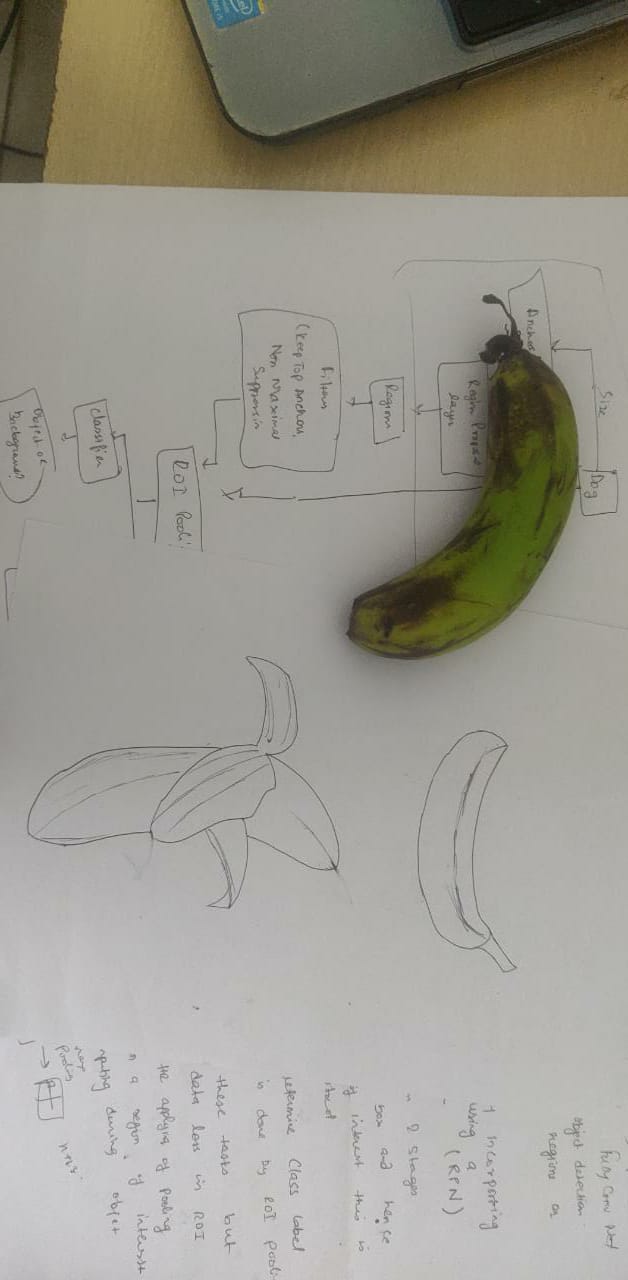 intel
Size
Dog
Anchor
Region Propos
layer
Region
Filters
(Keep Top Anchors,
Non Maximal
Suppression
ROI Pooli
classifier
Object or
background?
Fully Conv Net
object detection
regions or
Incorporting
using a
(RPN)
2 Stages
box and hence
of interest this is
determine Class label
is done by ROI pooli
these tasks but
data loss in ROI
the applying of pooling
n a region of interest
during object
max
pooling